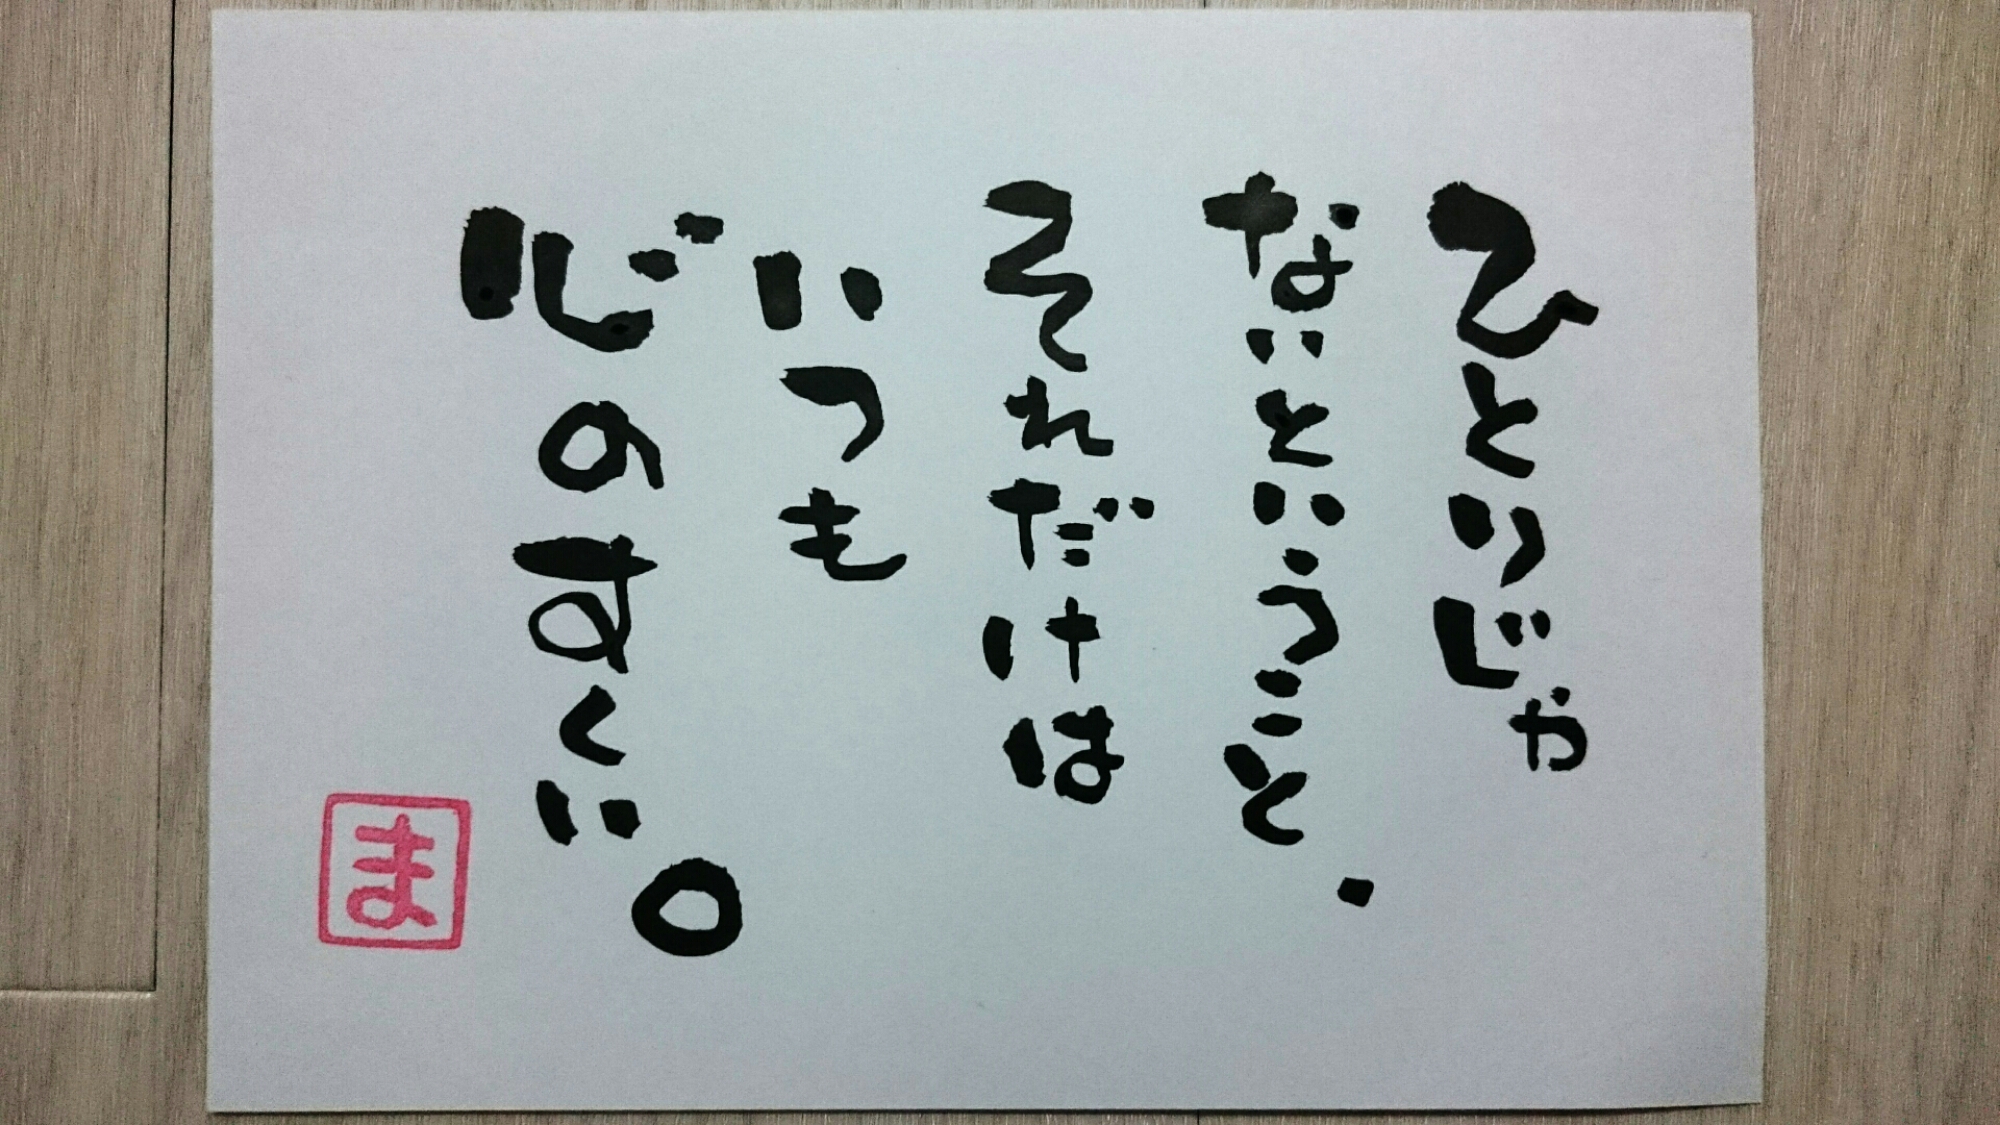 ひとりじゃ
ないということ.
それだけは
いつも
心のすくい。
ま